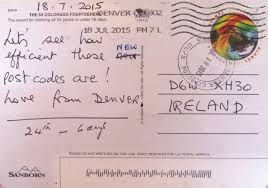 18.7.2015
S-14 THE COLORADO FOURTEENERS
The record for climbing all 54 peaks is under 15 days.
DENVER 802
18 JUL 2015 PM 7 L
Let's see how
efficient those NEW
post codes are!
Love from Denver
24th - 6 days
D6W XH30
IRELAND
PLEASE DO NOT WRITE BELOW THIS LINE. SPACE RESERVED FOR U.S. POSTAL SERVICE.
SANBORN